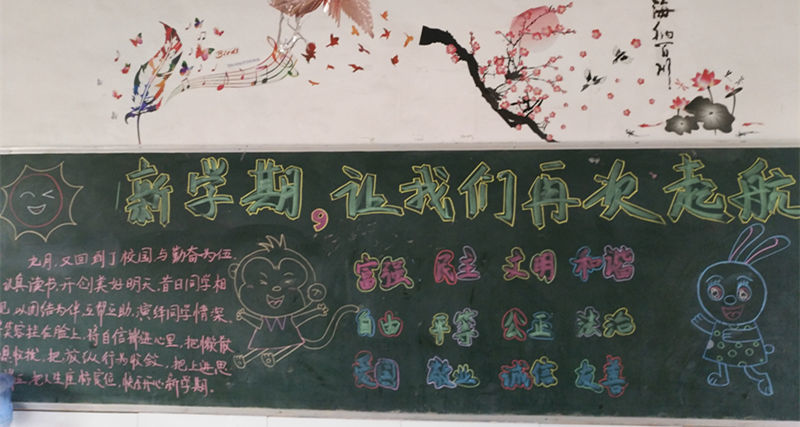 Birds
新学期,让我们再次起航
九月,又回到了校园与勤奋为伍,
认真读书,开创美好明天,昔日同学相
见,以团结为伴互帮互助,演绎同学情深,
笑容挂在脸上,将自信揣进心里,把懒散
把放纵行为收敛,把上进思
把人生座标定位,快乐开心新学期。
富强 民主 文明 和谐
自由 平等 公正 法治
爱国 敬业 诚信 友善